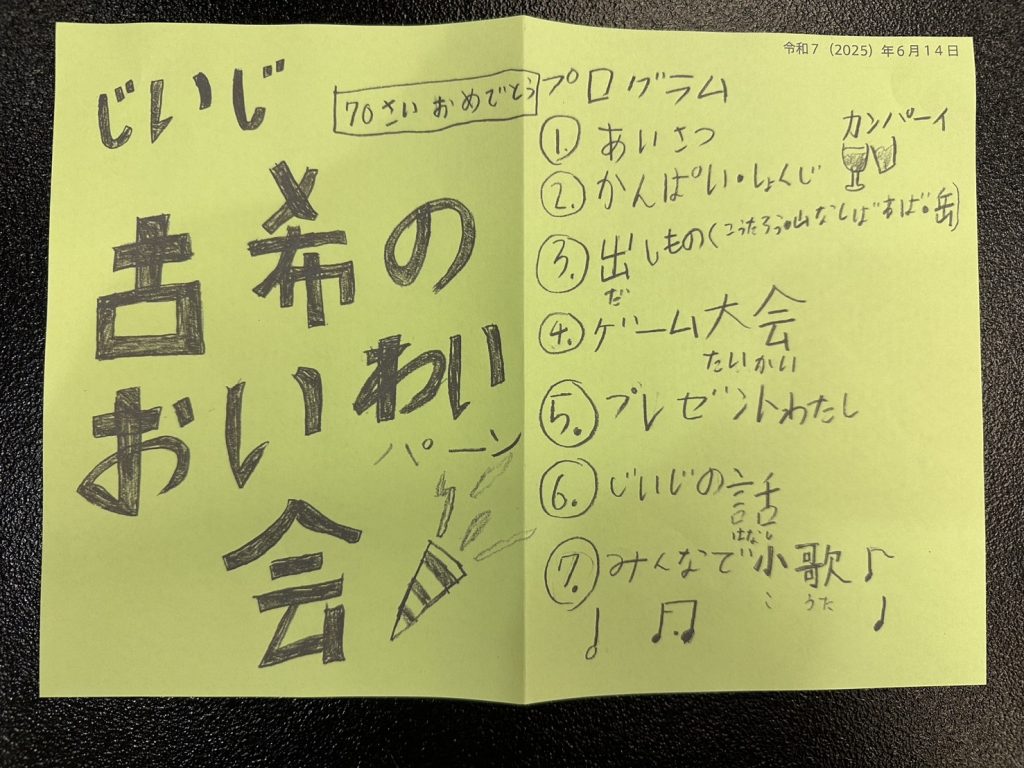 じいじ
古希の
おいわい
会
パーン
70さいおめでとう
令和7（2025）年6月14日
プログラム
1. あいさつ
カンパーイ
2. かんぱい・しょくじ
3. 出しもの(こうたろう・山なしばすば・岳)
だ
4. ゲーム大会
たいかい
5. プレゼントわたし
6. じいじの話
はなし
7. みんなで小歌♪
こ うた